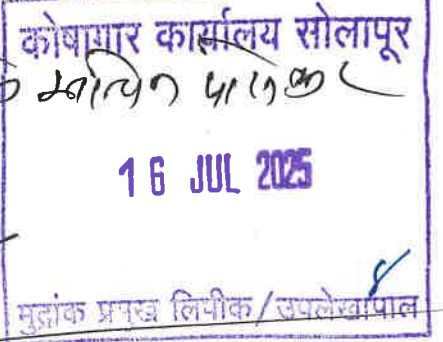 कोषागार कार्यालय सोलापूर
16 JUL 2025
मुद्रांक प्रमुख लिपीक / उपलेखापाल